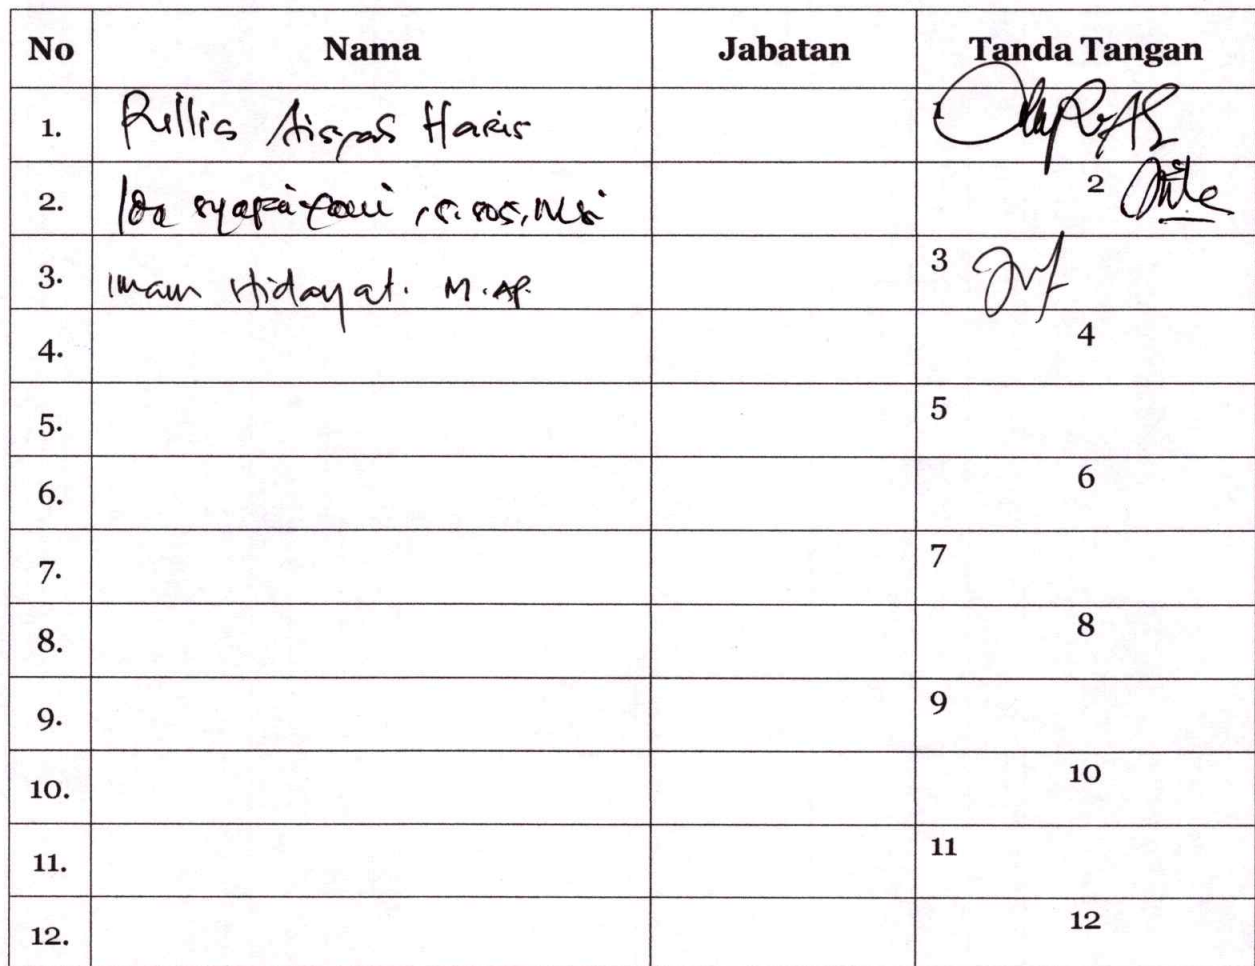 No Nama Jabatan Tanda Tangan
1. Rillis Aisyas Haris 1
2. Ida , S.Sos, M.Si 2
3. Imam Hidayat. M.AP. 3
4. 4
5. 5
6. 6
7. 7
8. 8
9. 9
10. 10
11. 11
12. 12